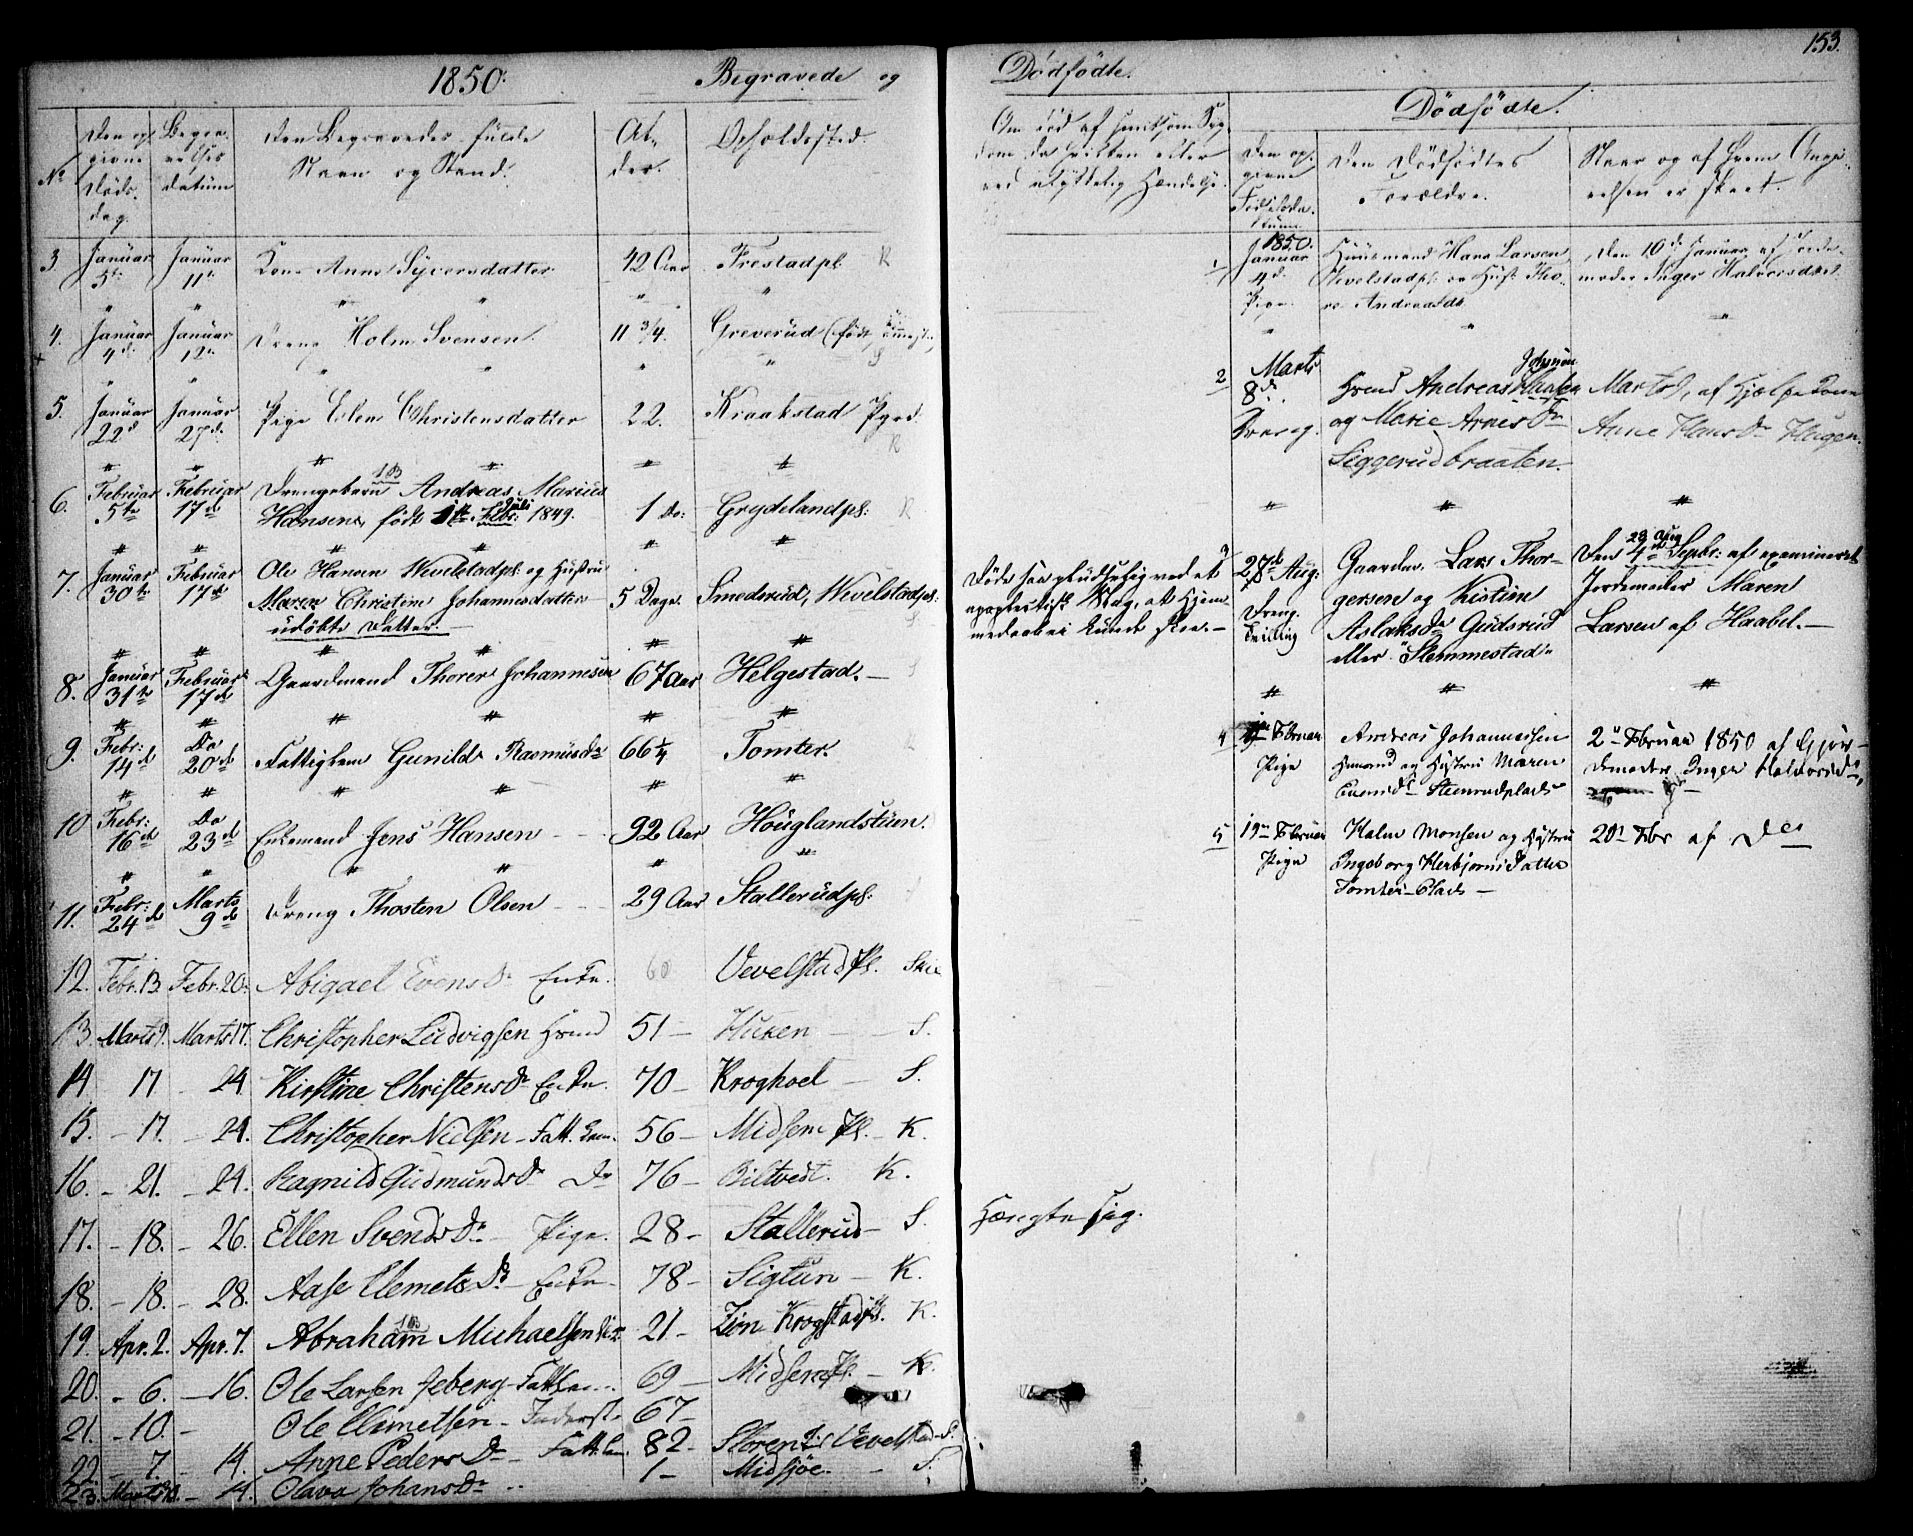 153.
1850. Begravede og Dødfødte.
No
Den op-
givne
Døds-
dag.
Begra-
velses
datum
Den Begravedes fulde
Navn og Stand.
Al-
der.
Opholdssted.
Om død af smitsom Syg-
dom, da hvilken eller
ved ulykkelig Hændelse.
Dødfødte.
Den op-
givne
Den Dødfødtes
Forældre.
Naar og af hvem Angi-
velsen er skeet.
3. Januar 5te Januar 11te Kone Anne Syversdatter 42 Aar Frestadpl. K
4. Januar 4de Januar 12te Dreng Holm Svensen. 11 3/4. Greverud (født
5. Januar 22d Januar 27d. Pige Elen Christensdatter 22. Kraakstad Pgrd. K
6. Februar 5te Februar 17de Drengebarn Andreas Marius
Hansen, født 1te Febr: Juli 1849. 1 Do: Grydelandpl: K
7. Januar 30te Februar 17de Ole Hansen Wevelstadpl: og Hustru
Maren Christine Johannesdatter 5 Dage. Smedsrud, Wevelstadpl: S
udøbte Datter.
8. Januar 31te Februar 17de Gaardmand Thorer Johannesen 67 Aar Helgestad. S
9. Febr: 14de Do 20de Fattiglem Gunild Rasmusdr 66 1/4 Tomter.
10 Febr: 16de Do 23de Enkemand Jens Hansen 92 Aar Houglandstuen.
11. Febr: 24de Marts 9de Dreng Thosten Olsen 29 Aar Stallerudpl:
12. Febr. 13 Febr. 20. Abigael Evensdr Enke. 60 Vevelstad Pl. Skie
13 Marts 9. Marts 17. Christopher Ludvigsen Hmd 51 - Huken - S.
14 17 - 24. Kirstine Christensdr Enke. 70 - Kroghoel - S.
15. - 17. - 24. Christopher Nielsen - Fatt. Lem. 56 - Midsem Pl. - K.
16. - 21. - 24. Ragnild Gudmundsdr Do 76 - Biltvedt. K.
17. - 18. - 26. Ellen Svendsdr - Pige. 28 - Stallerud - S. Hængte sig.
18. - 18. - 28. Aase Clemetsdr - Enke - 78 - Sigtun - K.
19. Apr. 2. Apr. 7. Abraham Michaelsen 21 - Krogstadpl. K.
20. - 6. - 16. Ole Larsen Seberg - Fattlem. 69 - Midsempl. - K.
21. - 10. - Ole Clemetsen - Inderst. 67 -
22 - 7. - 14. Anne Pedersdr - Fatt. Lem. 82 - Vevelstad S.
23. Marts - 14. Olava Johansdr 1 - Midsjøe. - S.
Døde saa pludselig ved et
apoplectisk Slag, at Hjem-
medaab ei kunde skee. -
1 1850. Januar 4de Pige. Huusmand Hans Larsen
Vevelstadpl: og Hust: Tho-
re Andreasdt.
Den 10de Januar af Jorde-
moder Inger Halvorsdtr.
2 Marts 8de. Dreng. Hmd Andreas Johnsen
og Marie Arnesdr
Siggerudbraaten.
Marts d, af Hjælpekone
Anne Hansdr Haugen.
27de Aug: Dreng. Tvilling Gaardm. Lars Thor-
gersen og Kistine
Aslaksdr Gudsrud
eller Slemmestad.
Den 4de Septbr: 28 Aug af examineret
Jordemoder Maren
Larsen af Haabel. -
4 Februar Pige Andreas Johannessen
Hmand og Hustru Maren
Evensdr Steenrudplads
2n Februar 1850 af Gjor-
demoder Inger Halvorsdr
5 19n Februar Pige Holm Monsen og Hustru
Ingeborg Herbjørns Datter
Tomter - Plads -
20n Fbr af Do